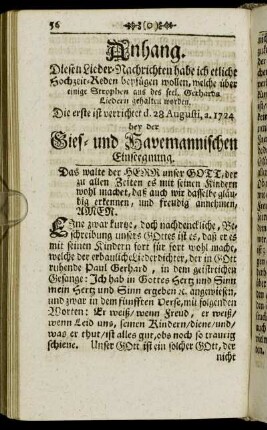 56
Anhang.
Diesen Lieder-Nachrichten habe ich etliche
Hochzeit-Reden beyfügen wollen, welche über
einige Strophen aus des seel. Gerhards
Liedern gehalten worden.
Die erste ist verrichtet d. 28 Augusti, a. 1724
bey der
Gies- und Havemannischen
Einsegnung.
Das walte der HERR unser GOTT, der
zu allen Zeiten es mit seinen Kindern
wohl machet, daß auch wir dasselbe gläu-
big erkennen, und freudig annehmen,
AMEN.
EIne zwar kurtze, doch nachdenckliche, Be-
schreibung unsers GOttes ist es, daß er es
mit seinen Kindern fort für fort wohl macht,
welche der erbauliche Liederdichter, der in GOtt
ruhende Paul Gerhard, in dem geistreichen
Gesange: Ich hab in Gottes Hertz und Sinn
mein Hertz und Sinn ergeben ꝛc. angewiesen,
und zwar in dem fünfften Verse, mit folgenden
Worten: Er weiß/ wenn Freud, er weiß/
wenn Leid uns, seinen Kindern/ diene/ und/
was er thut/ ist alles gut, obs noch so traurig
schiene. Unser GOtt ist ein solcher GOtt, der
nicht